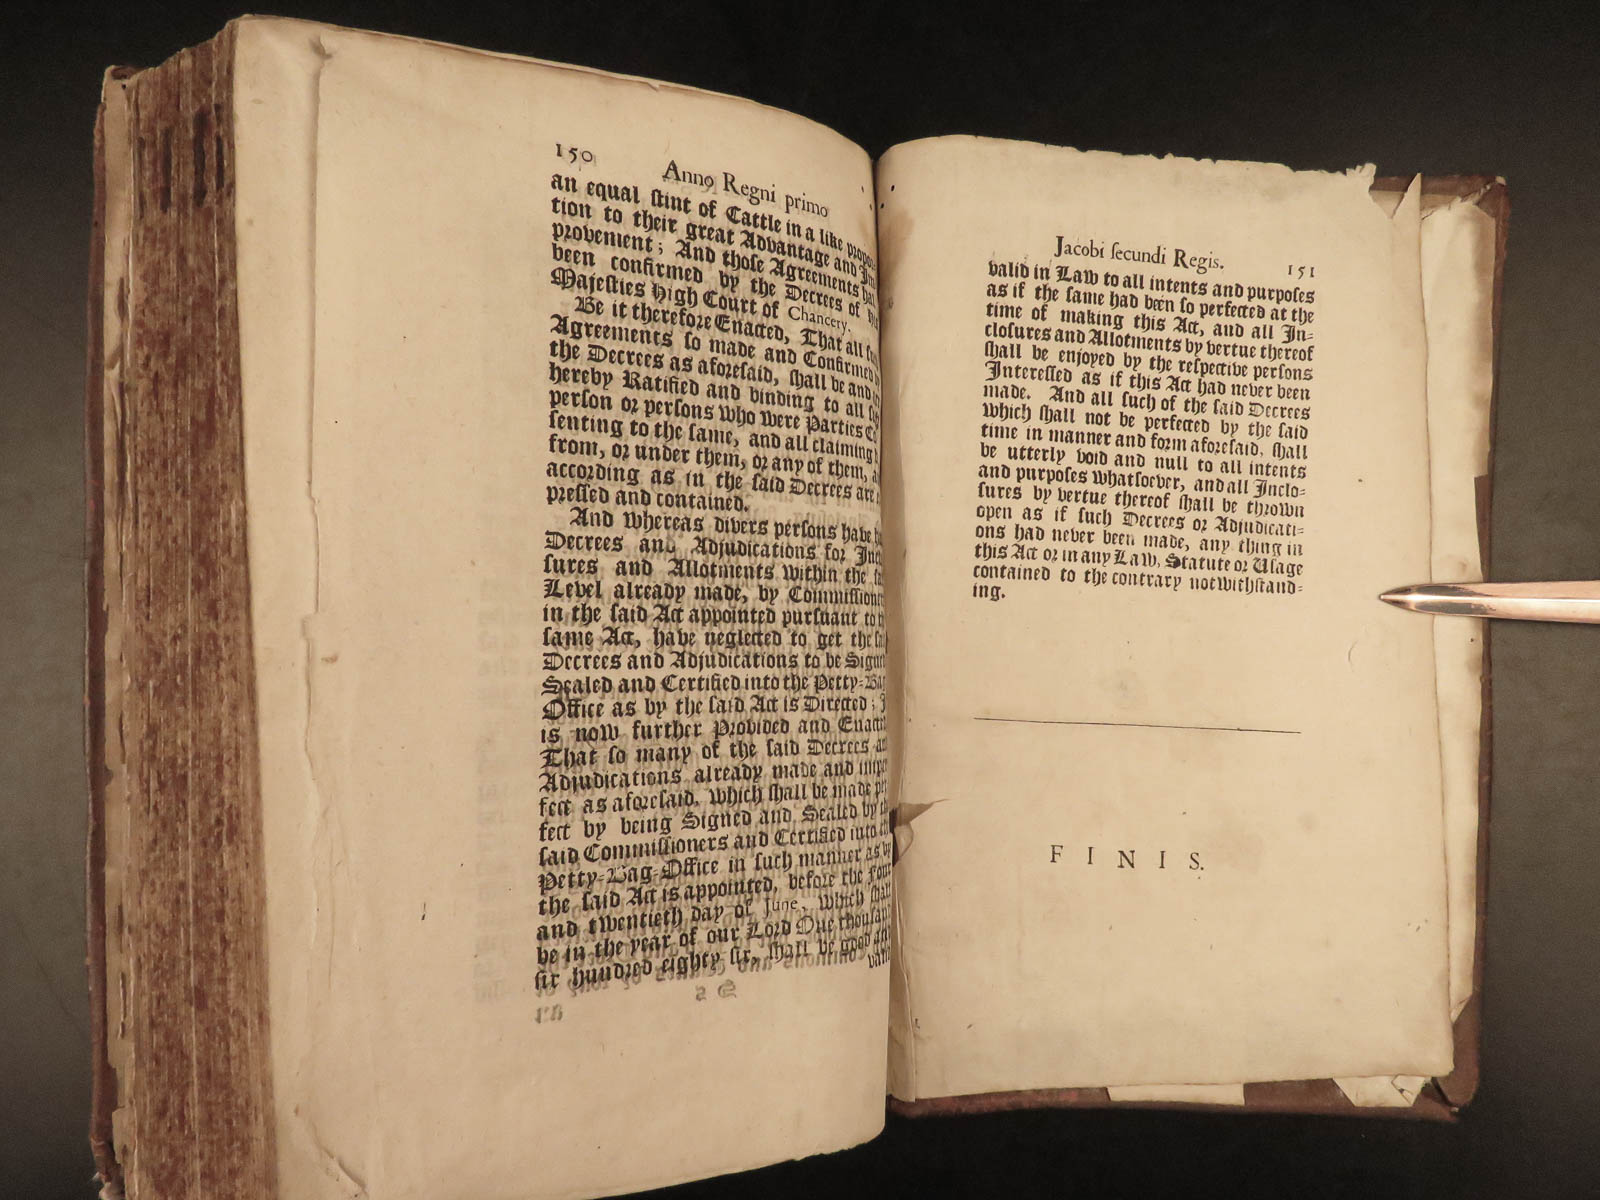 150
Anno Regni primo
an equal ſtint of Cattle in a like propor-
tion to their great Advantage and Im-
provement; And thoſe Agreements
been confirmed by the Decrees of
Majeſties High Court of Chancery.
Be it therefore Enacted, That all
Agreements ſo made and Confirmed
the Decrees as aforeſaid, ſhall be and
hereby Ratified and binding to all
perſon or perſons who were Parties
ſenting to the ſame, and all claiming
from, or under them, or any of them,
according as in the ſaid Decrees are
preſſed and contained.
And whereas divers perſons have
Decrees and Adjudications for
ſures and Allotments within the
Level already made, by Commiſſion
in the ſaid Act appointed purſuant to
ſame Act, have neglected to get the
Decrees and Adjudications to be
Sealed and Certified into the Petty-
Office as by the ſaid Act is Directed;
is now further Provided and
That ſo many of the ſaid Decrees
Adjudications already made and
fect as aforeſaid, which ſhall be made
fect by being Signed and Sealed by
ſaid Commiſſioners and Certified into
Petty-Bag-Office in ſuch manner as
the ſaid Act is appointed, before the
and twentieth day of June, which
be in the year of our Lord One
ſix hundred eighty ſix, ſhall be good
Jacobi ſecundi Regis. 151
valid in Law to all intents and purpoſes
as if the ſame had been ſo perfected at the
time of making this Act, and all In-
cloſures and Allotments by vertue thereof
ſhall be enjoyed by the reſpective perſons
Intereſſed as if this Act had never been
made. And all ſuch of the ſaid Decrees
which ſhall not be perfected by the ſaid
time in manner and form aforeſaid, ſhall
be utterly void and null to all intents
and purpoſes whatſoever, and all Inclo-
ſures by vertue thereof ſhall be thrown
open as if ſuch Decrees or Adjudicati-
ons had never been made, any thing in
this Act or in any Law, Statute or Uſage
contained to the contrary notwithſtand-
ing.
FINIS.